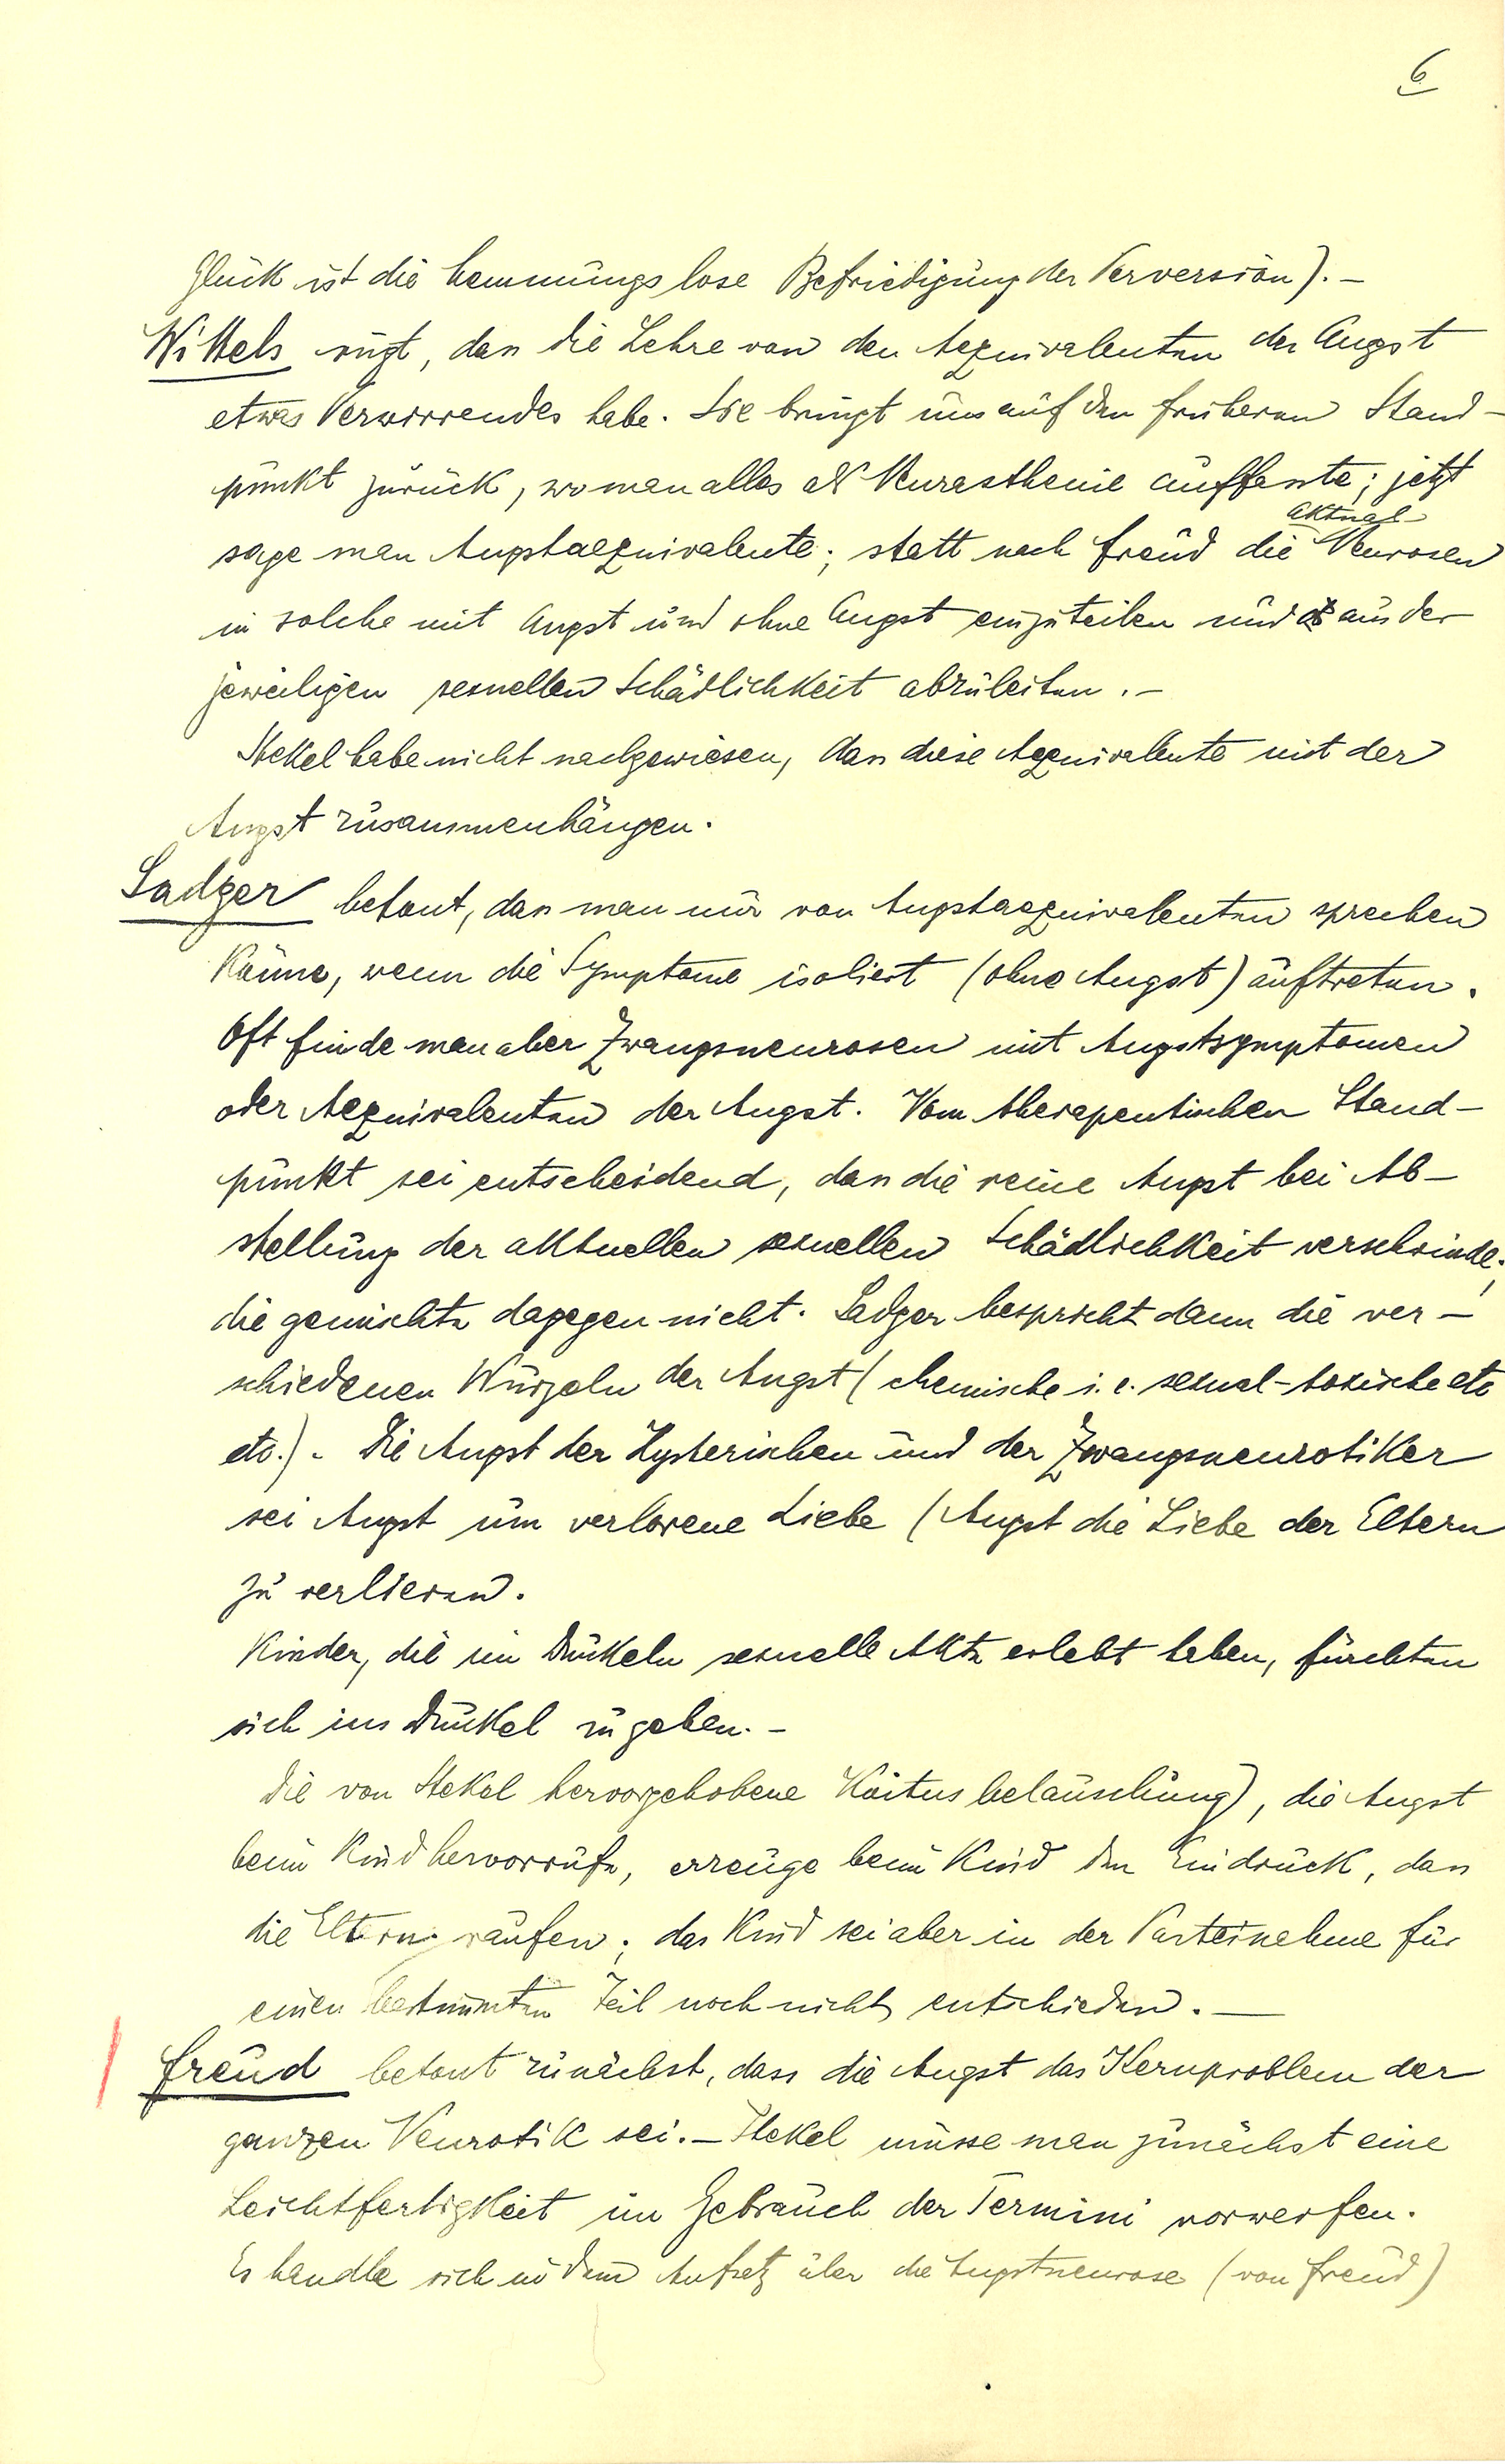 6
Glück ist die hemmungslose Befriedigung der Perversion). –
Wittels rügt, dass die Lehre von den Aequivalenten der Angst
etwas Verwirrendes habe. Sie bringt uns auf den früheren Stand-
punkt zurück, wo man alles als Neurasthenie auffasste; jetzt
sage man Angstaequivalente; statt nach Freud die Aktual-Neurosen
in solche mit Angst und ohne Angst einzuteilen und aus der
jeweiligen sexuellen Schädlichkeit abzuleiten. –
Stekel habe nicht nachgewiesen, dass diese Aequivalente mit der
Angst zusammenhängen.
Sadger betont, dass man nur von Angstaequivalenten sprechen
könne, wenn die Symptome isoliert (ohne Angst) auftreten.
Oft finde man aber Zwangsneurosen mit Angstsymptomen
oder Aequivalenten der Angst. Vom therapeutischen Stand-
punkt sei entscheidend, dass die reine Angst bei Ab-
stellung der aktuellen sexuellen Schädlichkeit verschwinde;
die gemischte dagegen nicht. Sadger bespricht dann die ver-
schiedenen Wurzeln der Angst (chemische i. e. sexual-toxische etc
etc.). Die Angst der Hysterischen und der Zwangsneurotiker
sei Angst um verlorene Liebe (Angst die Liebe der Eltern
zu verlieren.
Kinder, die im Dunkeln sexuelle Akte erlebt haben, fürchten
sich ins Dunkel zu gehen. –
Die von Stekel hervorgehobene Koitusbelauschung), die Angst
beim Kind hervorrufe, erzeuge beim Kind den Eindruck, dass
die Eltern raufen; das Kind sei aber in der Parteinahme für
einen bestimmten Teil noch nicht entschieden. –
Freud betont zunächst, dass die Angst das Kernproblem der
ganzen Neurotik sei. – Stekel müsse man zunächst eine
Leichtfertigkeit im Gebrauch der Termini vorwerfen.
Es handle sich in dem Aufsatz über die Angstneurose (von Freud)